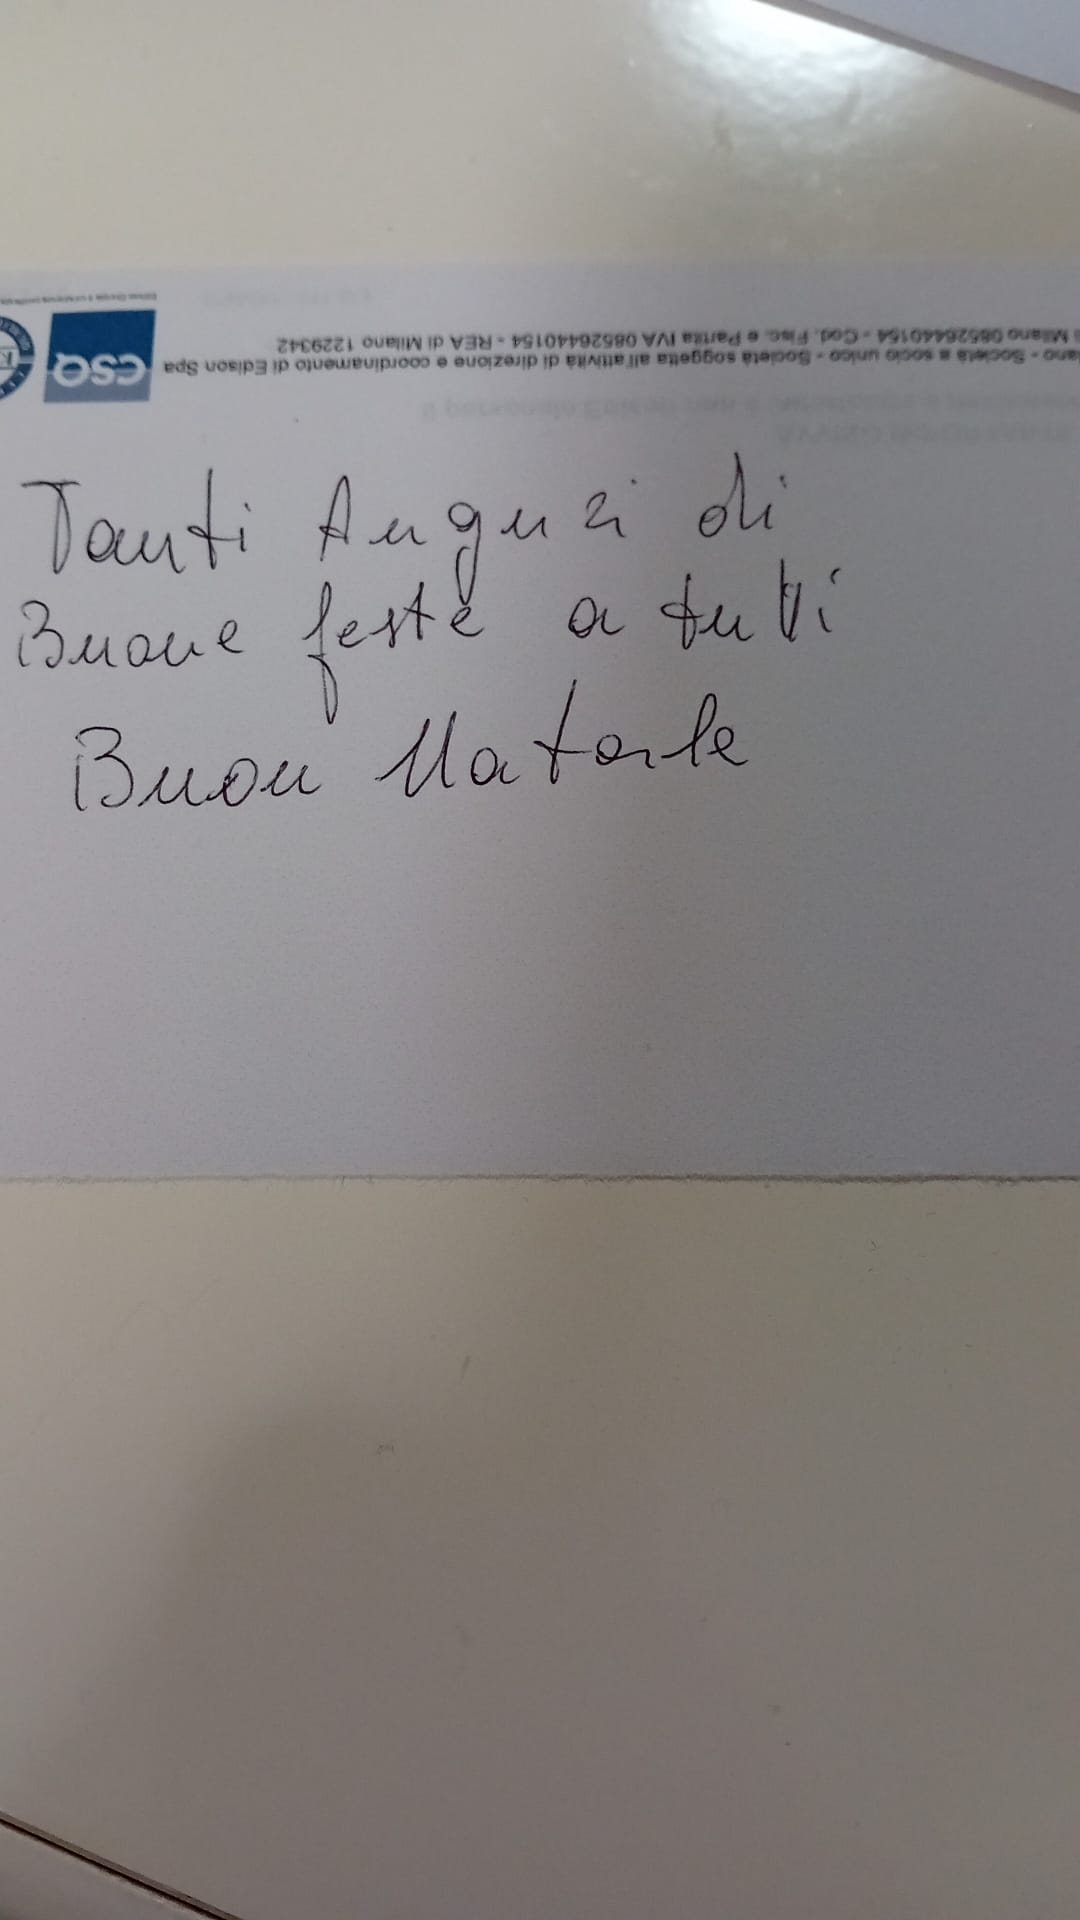 Milano 08526440154 - Cod. Fisc. e Partita IVA 08526440154 - REA di Milano 1229342
ano - Società a socio unico - Società soggetta all'attività di direzione e coordinamento di Edison Spa
CSQ
Tanti Auguri di
Buone feste a tutti
Buon Natale